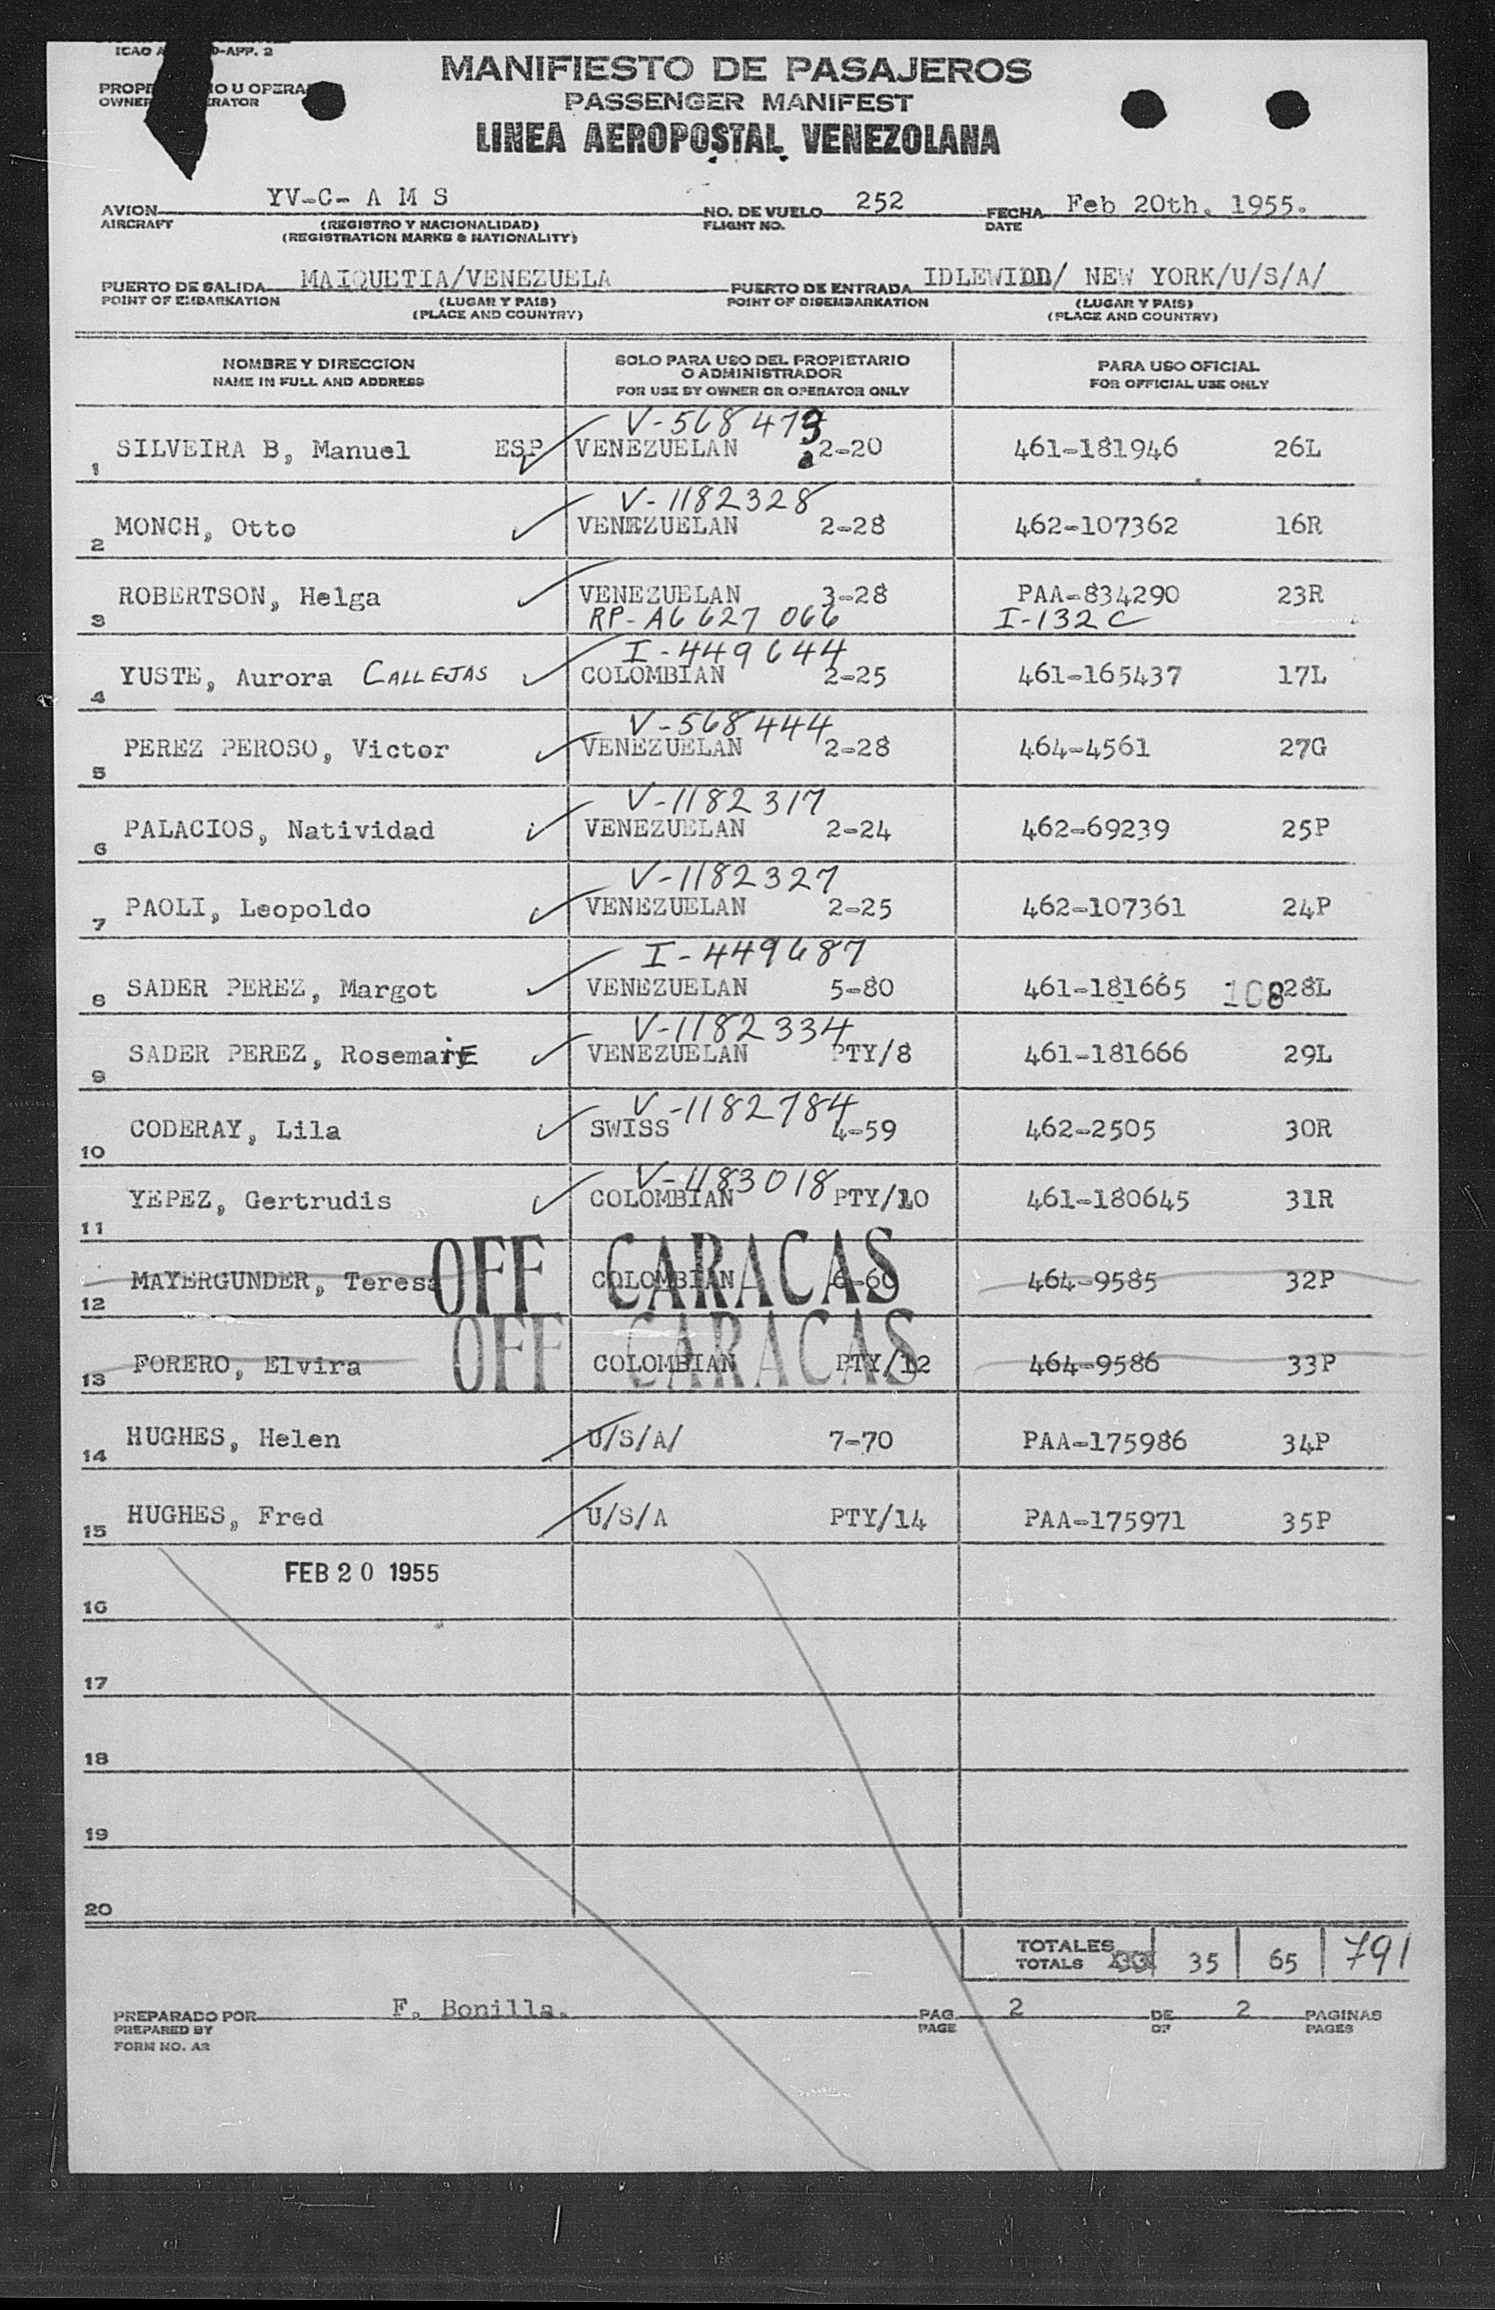 ICAO A D-APP. 2
MANIFIESTO DE PASAJEROS
PROPI O U OPERA
OWNER RATOR
PASSENGER MANIFEST
LINEA AEROPOSTAL VENEZOLANA
AVION YV-C- A M S NO. DE VUELO 252 FECHA Feb 20th. 1955.
AIRCRAFT (REGISTRO Y NACIONALIDAD) FLIGHT NO. DATE
(REGISTRATION MARKS & NATIONALITY)
PUERTO DE SALIDA MAIQUETIA/VENEZUELA PUERTO DE ENTRADA IDLEWIDD/ NEW YORK/U/S/A/
POINT OF EMBARKATION (LUGAR Y PAIS) POINT OF DISEMBARKATION (LUGAR Y PAIS)
(PLACE AND COUNTRY) (PLACE AND COUNTRY)
NOMBRE Y DIRECCION SOLO PARA USO DEL PROPIETARIO O ADMINISTRADOR PARA USO OFICIAL
NAME IN FULL AND ADDRESS FOR USE BY OWNER OR OPERATOR ONLY FOR OFFICIAL USE ONLY
V-568473
1 SILVEIRA B, Manuel ESP VENEZUELAN 2-20 461-181946 26L
V-1182328
2 MONCH, Otto VENEZUELAN 2-28 462-107362 16R
3 ROBERTSON, Helga VENEZUELAN 3-28 PAA-834290 23R
RP-A6 627 066 I-132C
I-449644
4 YUSTE, Aurora CALLEJAS COLOMBIAN 2-25 461-165437 17L
V-568444
5 PEREZ PEROSO, Victor VENEZUELAN 2-28 464-4561 27G
V-1182317
6 PALACIOS, Natividad VENEZUELAN 2-24 462-69239 25P
V-1182327
7 PAOLI, Leopoldo VENEZUELAN 2-25 462-107361 24P
I-449687
8 SADER PEREZ, Margot VENEZUELAN 5-80 461-181665 108 28L
V-1182334
9 SADER PEREZ, RosemariE VENEZUELAN PTY/8 461-181666 29L
V-1182784
10 CODERAY, Lila SWISS 4-59 462-2505 30R
V-1183018
11 YEPEZ, Gertrudis COLOMBIAN PTY/10 461-180645 31R
OFF CARACAS
12 MAYERGUNDER, Teresa COLOMBIAN 6-60 464-9585 32P
OFF CARACAS
13 FORERO, Elvira COLOMBIAN PTY/12 464-9586 33P
14 HUGHES, Helen U/S/A/ 7-70 PAA-175986 34P
15 HUGHES, Fred U/S/A PTY/14 PAA-175971 35P
FEB 20 1955
16
17
18
19
20
TOTALES
TOTALS 33 35 65 791
PREPARADO POR F. Bonilla. PAG. 2 DE 2 PAGINAS
PREPARED BY PAGE OF PAGES
FORM NO. A2